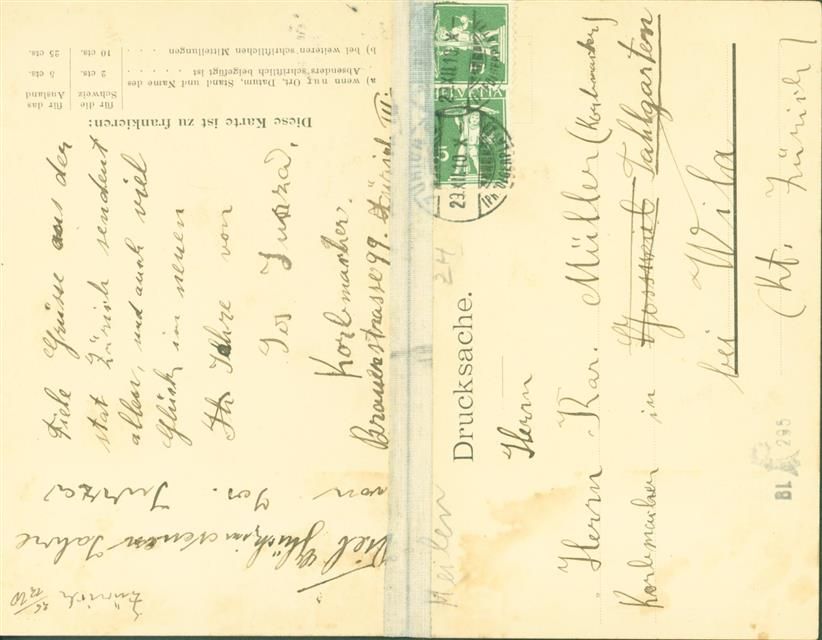 Diese Karte ist zu frankieren:
für die Schweiz
für das Ausland
a) wenn nur Ort, Datum, Stand und Name des
Absenders schriftlich beigefügt ist . . . . 2 cts. 5 cts.
b) bei weiteren schriftlichen Mittellungen . . . . 10 cts. 25 cts.
Viele Grüsse aus der
stat Zürich sendent
allen, und auch viel
Glück im neuen
Jahre von
Jos
Korbmacher.
Brauerstrasse 99. Zürich III.
Viel Glück im neuen Jahre
von Jos.
Zürich 26/12 10
Drucksache.
Herrn
Herrn Kar. Müller (Korbmacher)
Korbmacher in Tablgarten
bei Wila
(Kt. Zürich)
Meilen
24
29.XII.10.X
BL 295